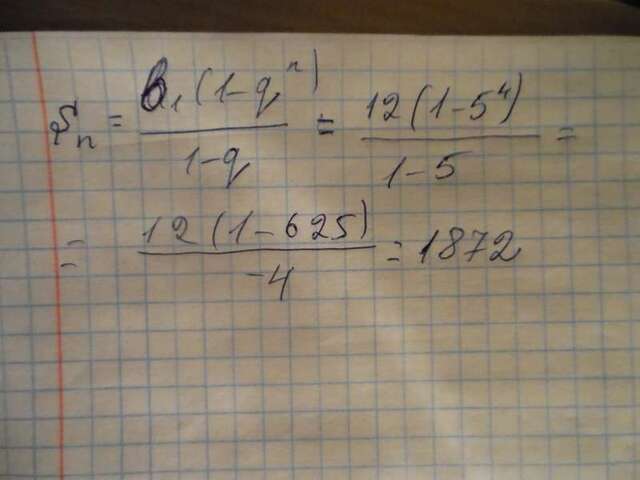 Sₙ = b₁(1-qⁿ)/(1-q) = 12(1-5⁴)/(1-5) =
= 12(1-625)/(-4) = 1872